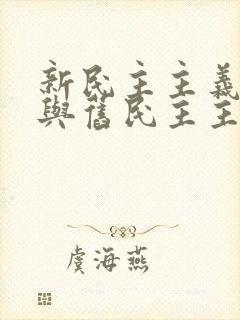 新民主主義
與舊民主主
虞海燕